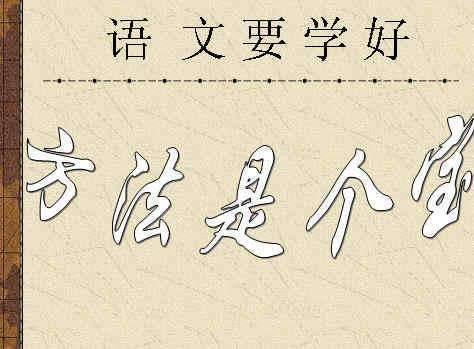 语文要学好
方法是个宝